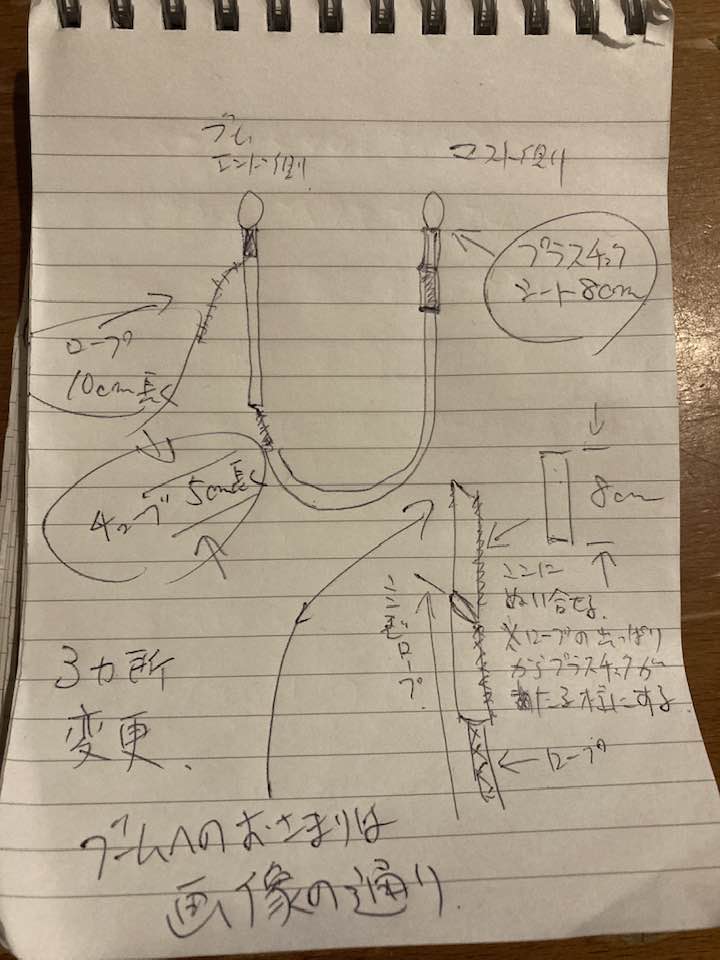 エンド側
マスト側
プラスチック
シート8cm
ロープ
10cm長く
チューブ5cm長く
8cm
ここに
ぬい合せる
※ロープの出っぱり
からプラスチックが
あたる様にする
ここまでロープ
ロープ
3カ所
変更、
ブームへのおさまりは
画像の通り.